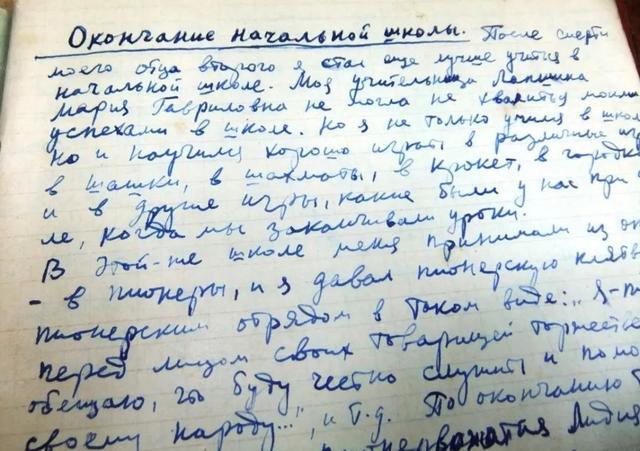 Окончание начальной школы. После смерти
моего отца второго я стал еще лучше учится в
начальной школе. Моя учительница Лапшина
Мария Гавриловна не могла не хвалиться моими
успехами в школе. Но я не только учился в школ
но и научился хорошо играть в различные игр
в шашки, в шахматы, в крокет, в городк
и в другие игры, какие были у нас при
ле, когда мы заканчивали уроки.
В этой-же школе меня принимали из ок
- в пионеры, и я давал пионерскую клятв
пионерским обрядом в таком виде: „Я-пи
перед лицом своих товарищей торжестве
обещаю, что буду честно служить и помо
своему народу...", и т.д. По окончанию
Лидия